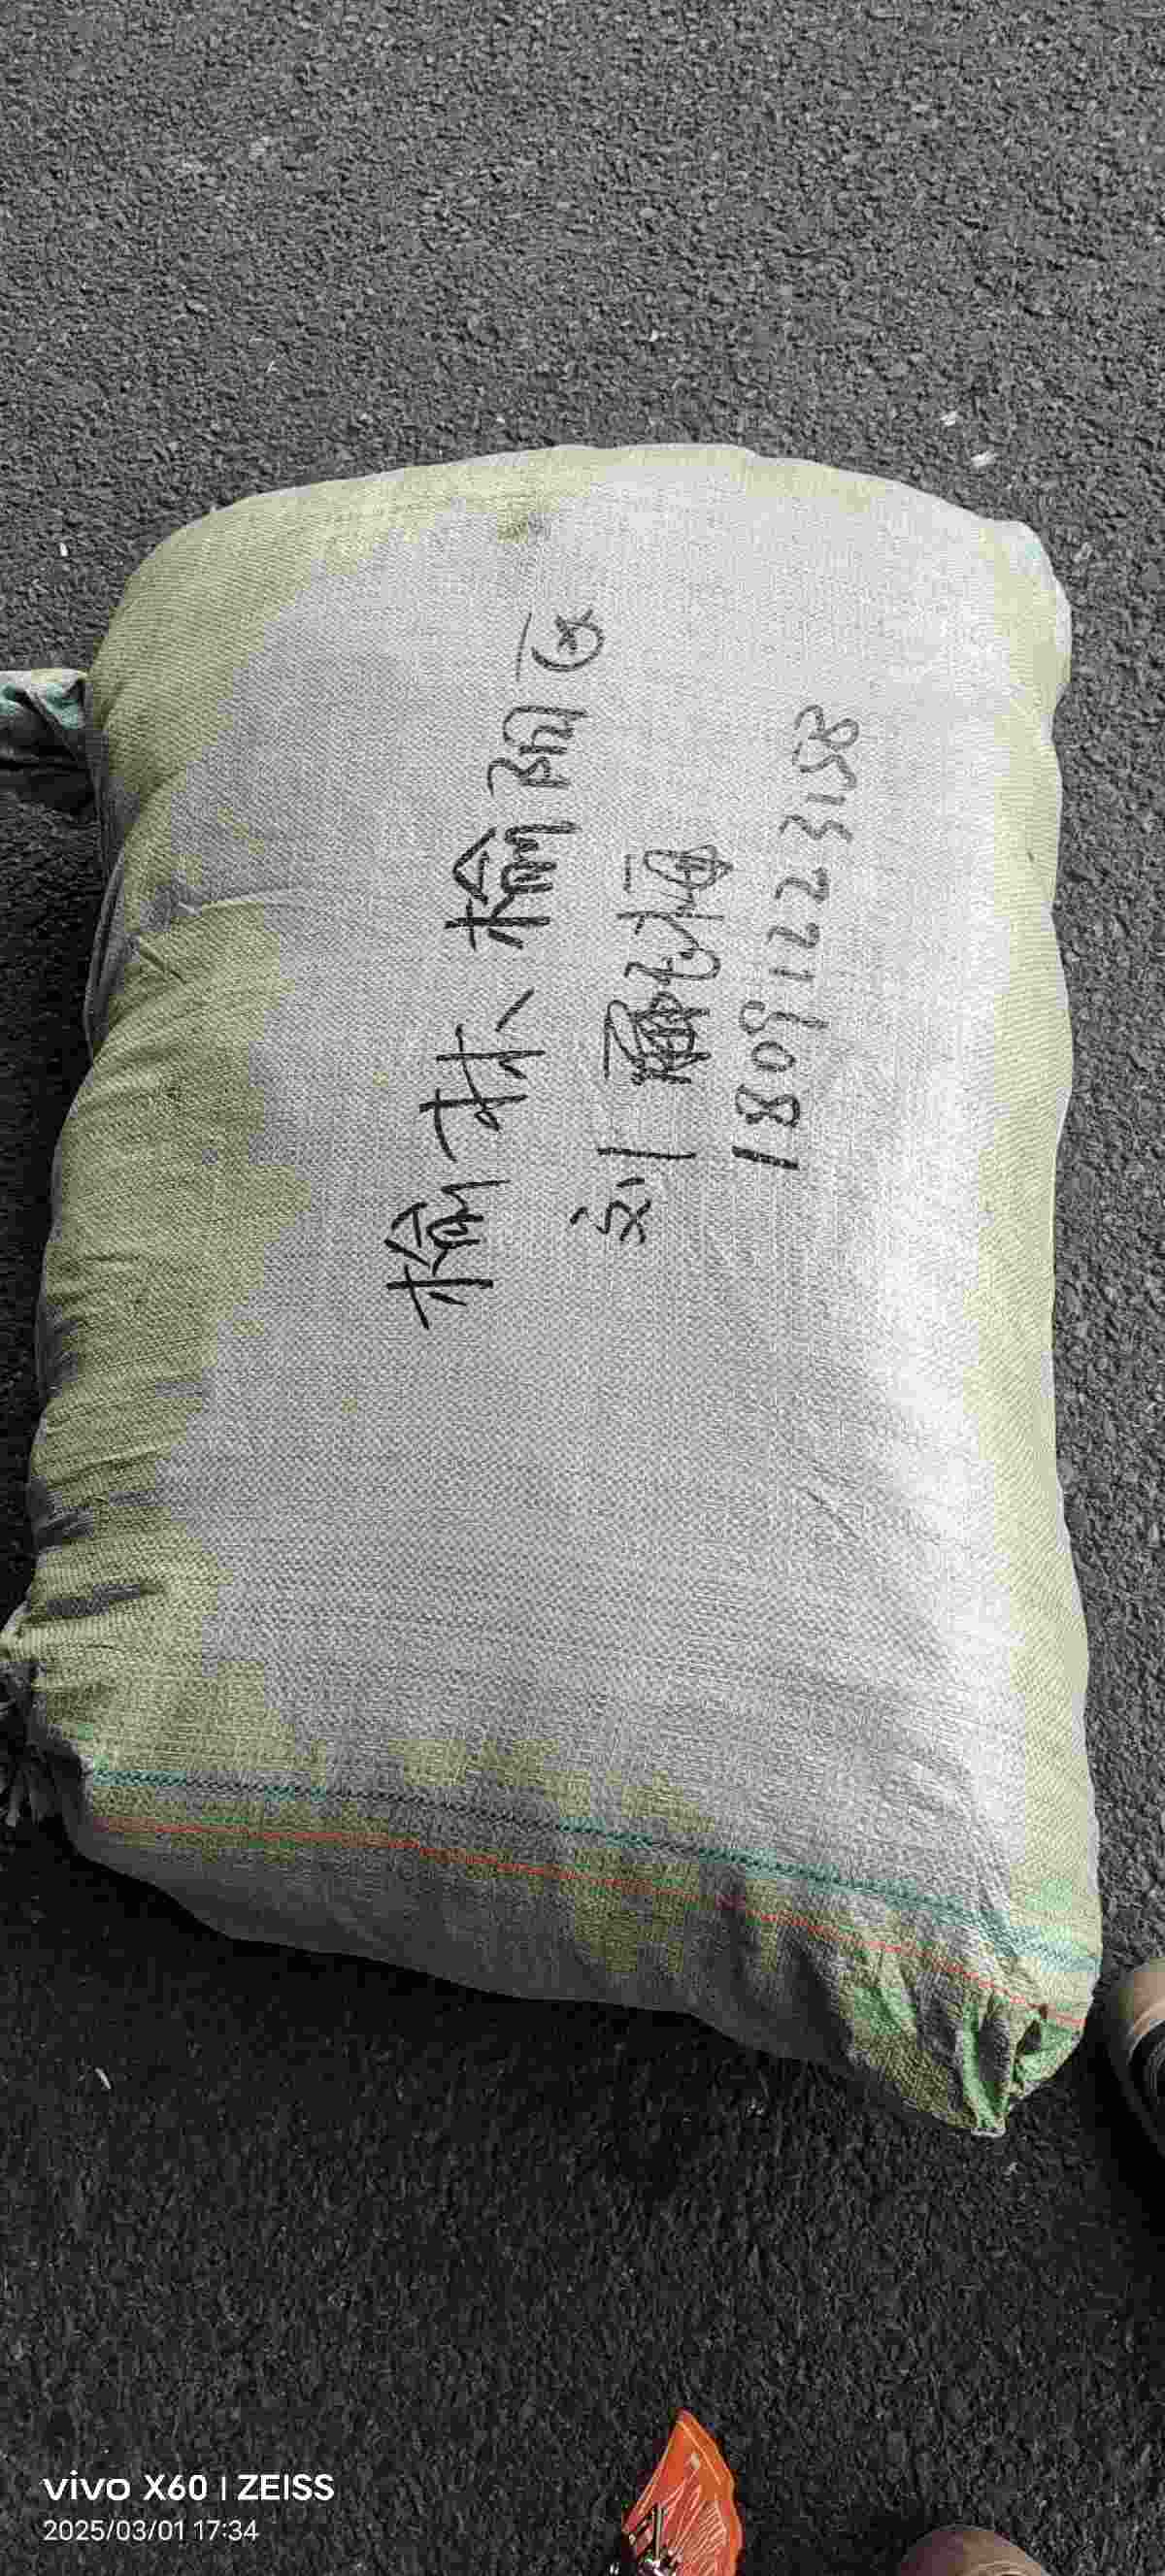 榆林、榆阳区
刘 艳梅
18091223158
vivo X60 | ZEISS
2025/03/01 17:34